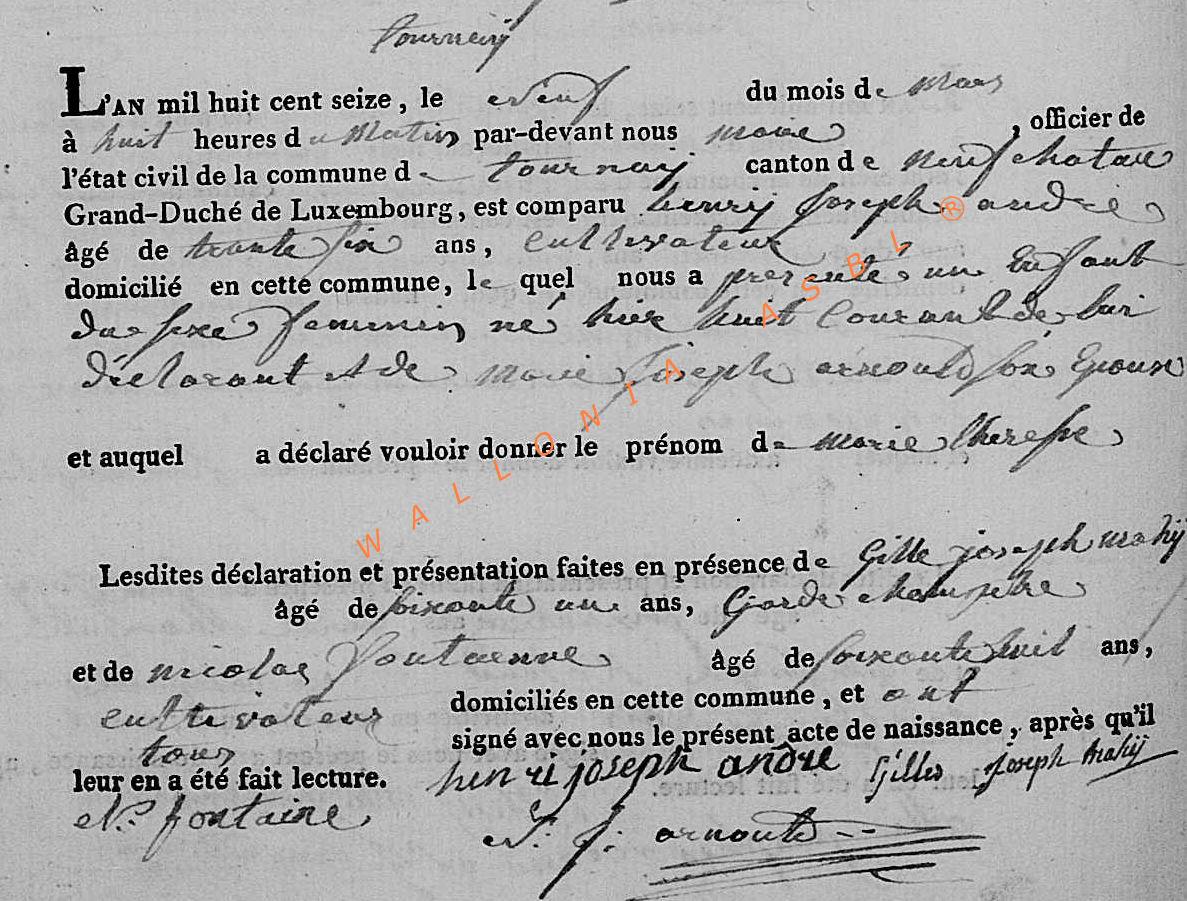 tournay
L'AN mil huit cent seize, le neuf du mois de mars
à huit heures du Matin par-devant nous maire, officier de
l'état civil de la commune de tournay canton de neufchatau
Grand-Duché de Luxembourg, est comparu henry Joseph andre
âgé de trante six ans, cultivateur
domicilié en cette commune, le quel nous a presenté un Enfant
du sexe feminin né hier huit Courant de lui
déclarant et de marie joseph arnould son Epouse
et auquel a déclaré vouloir donner le prénom de marie therese
Lesdites déclaration et présentation faites en présence de Gille joseph mahy
âgé de soixante un ans, Garde champetre
et de nicolas fontaenne âgé de soixante huit ans,
cultivateur domiciliés en cette commune, et ont
tous signé avec nous le présent acte de naissance, après qu'il
leur en a été fait lecture. henri joseph andre Gilles Joseph Mahy
N. fontaine J. arnould
WALLONIA ASBL ®